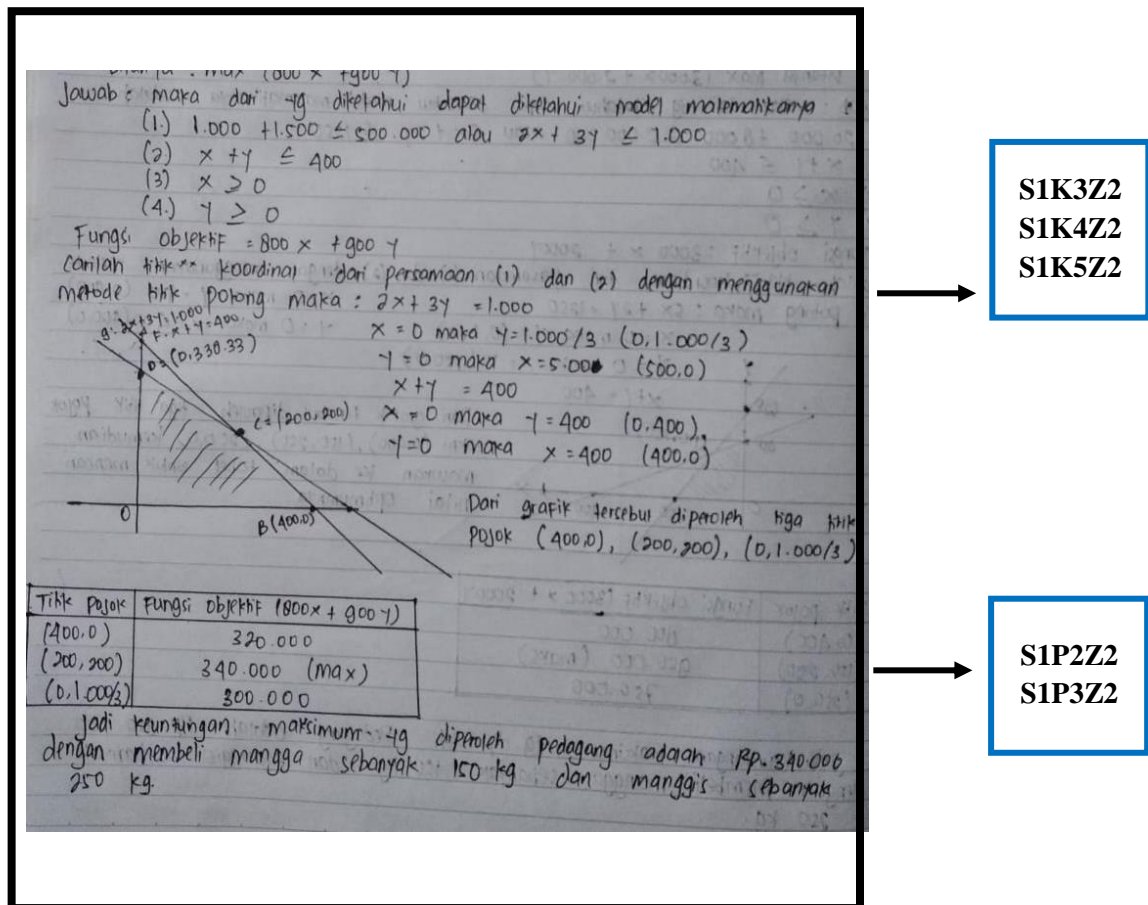 Jawab : maka dari yg diketahui dapat diketahui model matematikanya :
(1.) 1.000 + 1.500 ≤ 500.000 atau 2x + 3y ≤ 1.000
(2) x + y ≤ 400
(3) x ≥ 0
(4.) y ≥ 0
Fungsi objektif = 800 x + 900 y
Carilah titik** koordinat dari persamaan (1) dan (2) dengan menggunakan
metode titik potong maka : 2x + 3y = 1.000
x = 0 maka y = 1.000/3 (0, 1.000/3)
y = 0 maka x = 5.00 (500,0)
x + y = 400
x = 0 maka y = 400 (0,400).
y = 0 maka x = 400 (400,0)
g: 2x + 3y = 1.000
F: x + y = 400
D = (0,330.33)
C = (200, 200)
O
B (400,0)
Dari grafik tersebut diperoleh tiga titik
pojok (400,0), (200,200), (0, 1.000/3)
Titik pojok Fungsi objektif (800x + 900 y)
(400,0) 320.000
(200, 200) 340.000 (max)
(0, 1.000/3) 300.000
Jadi keuntungan maksimum yg diperoleh pedagang adalah Rp. 340.000
dengan membeli mangga sebanyak 150 kg dan manggis sebanyak
250 kg.
S1K3Z2
S1K4Z2
S1K5Z2
S1P2Z2
S1P3Z2